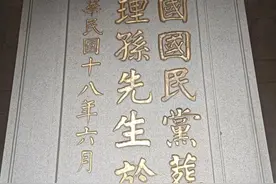 國國民黨葬
理孫先生於
華民國十八年六月